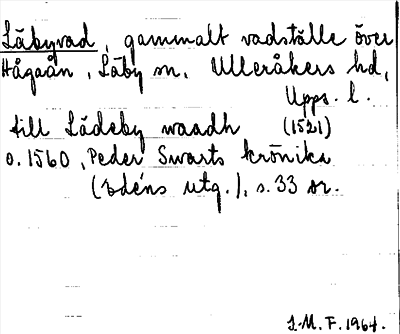 Läbyvad, gammalt vadställe över
Hågaån, Läby sn, Ulleråkers hd,
Upps. l.
till Lädeby waadh (1521)
o. 1560, Peder Swarts krönika
(Edéns utg.), s. 33 sr.
I.M.F. 1964.